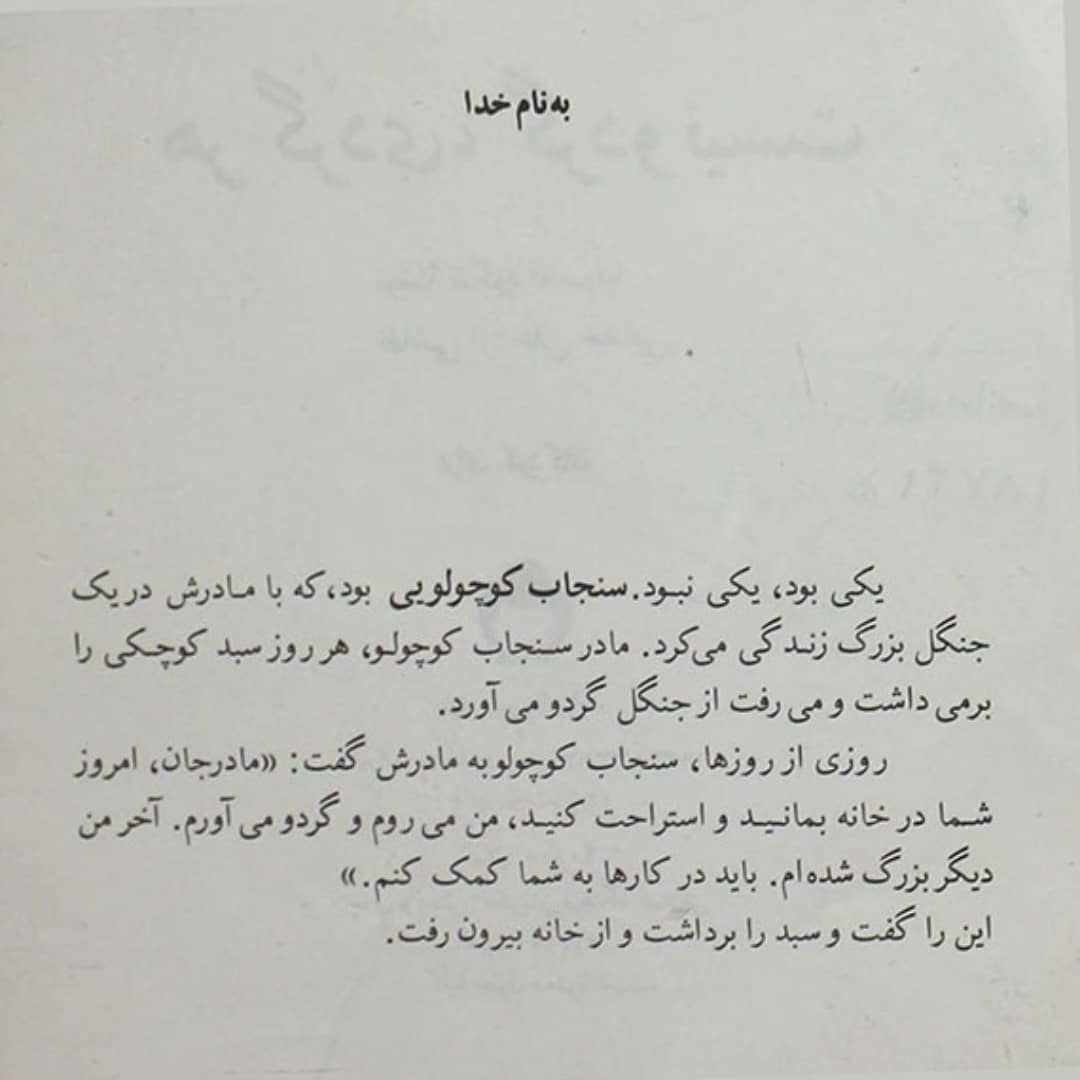 به نام خدا
یکی بود، یکی نبود. سنجاب کوچولویی بود، که با مادرش در یک
جنگل بزرگ زندگی می‌کرد. مادر سنجاب کوچولو، هر روز سبد کوچکی را
برمی داشت و می رفت از جنگل گردو می آورد.
روزی از روزها، سنجاب کوچولو به مادرش گفت: «مادرجان، امروز
شما در خانه بمانید و استراحت کنید، من می روم و گردو می آورم. آخر من
دیگر بزرگ شده‌ام. باید در کارها به شما کمک کنم.»
این را گفت و سبد را برداشت و از خانه بیرون رفت.